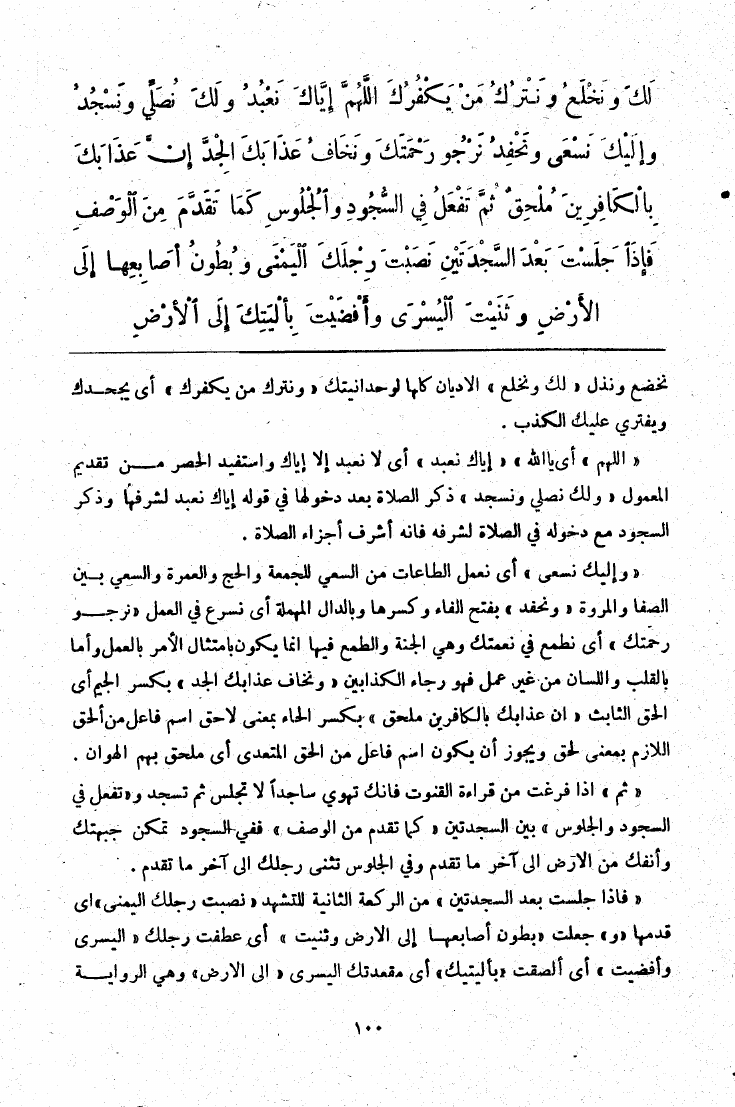 لَكَ وَنَخْلَعُ وَنَتْرُكُ مَنْ يَكْفُرُكَ اللَّهُمَّ إِيَّاكَ نَعْبُدُ وَلَكَ نُصَلِّي وَنَسْجُدُ
وَإِلَيْكَ نَسْعَى وَنَحْفِدُ نَرْجُو رَحْمَتَكَ وَنَخَافُ عَذَابَكَ الْجِدَّ إِنَّ عَذَابَكَ
بِالْكَافِرِينَ مُلْحِقٌ ثُمَّ تَفْعَلُ فِي السُّجُودِ وَالْجُلُوسِ كَمَا تَقَدَّمَ مِنَ الْوَصْفِ
فَإِذَا جَلَسْتَ بَعْدَ السَّجْدَتَيْنِ نَصَبْتَ رِجْلَكَ الْيُمْنَى وَبُطُونُ أَصَابِعِهَا إِلَى
الأَرْضِ وَثَنَيْتَ الْيُسْرَى وَأَفْضَيْتَ بِأَلْيَتِكَ إِلَى الْأَرْضِ
نخضع ونذل « لك ونخلع » الاديان كلها لوحدانيتك « ونترك من يكفرك » أى يجحدك
ويفتري عليك الكذب .
« اللهم » أى ياالله » « إياك نعبد » أى لا نعبد إلا إياك واستفيد الحصر من تقديم
المعمول « ولك نصلي ونسجد » ذكر الصلاة بعد دخولها في قوله إياك نعبد لشرفها وذكر
السجود مع دخوله في الصلاة لشرفه فانه أشرف أجزاء الصلاة .
« وإليك نسعى » أى نعمل الطاعات من السعي للجمعة والحج والعمرة والسعي بين
الصفا والمروة « ونحفد » بفتح الفاء وكسرها وبالدال المهملة أى نسرع في العمل «نرجو
رحمتك » أى نطمع في نعمتك وهي الجنة والطمع فيها انما يكون بامتثال الأمر بالعمل وأما
بالقلب واللسان من غير عمل فهو رجاء الكذابين « ونخاف عذابك الجد » بكسر الجيم أى
الحق الثابث « ان عذابك بالكافرين ملحق » بكسر الحاء بمعنى لاحق اسم فاعل من ألحق
اللازم بمعنى لحق ويجوز أن يكون اسم فاعل من الحق المتعدى أى ملحق بهم الهوان .
« ثم » اذا فرغت من قراءة القنوت فانك تهوي ساجداً لا تجلس ثم تسجد و«تفعل في
السجود والجلوس » بين السجدتين « كما تقدم من الوصف » ففي السجود تمكن جبهتك
وأنفك من الارض الى آخر ما تقدم وفي الجلوس تثنى رجلك الى آخر ما تقدم .
« فاذا جلست بعد السجدتين » من الركعة الثانية للتشهد « نصبت رجلك اليمنى »اى
قدمها «و» جعلت «بطون أصابعها إلى الارض وثنيت » أى عطفت رجلك « اليسرى
وأفضيت » أى ألصقت «بأليتيك» أى مقعدتك اليسرى « الى الارض» وهي الرواية
١٠٠